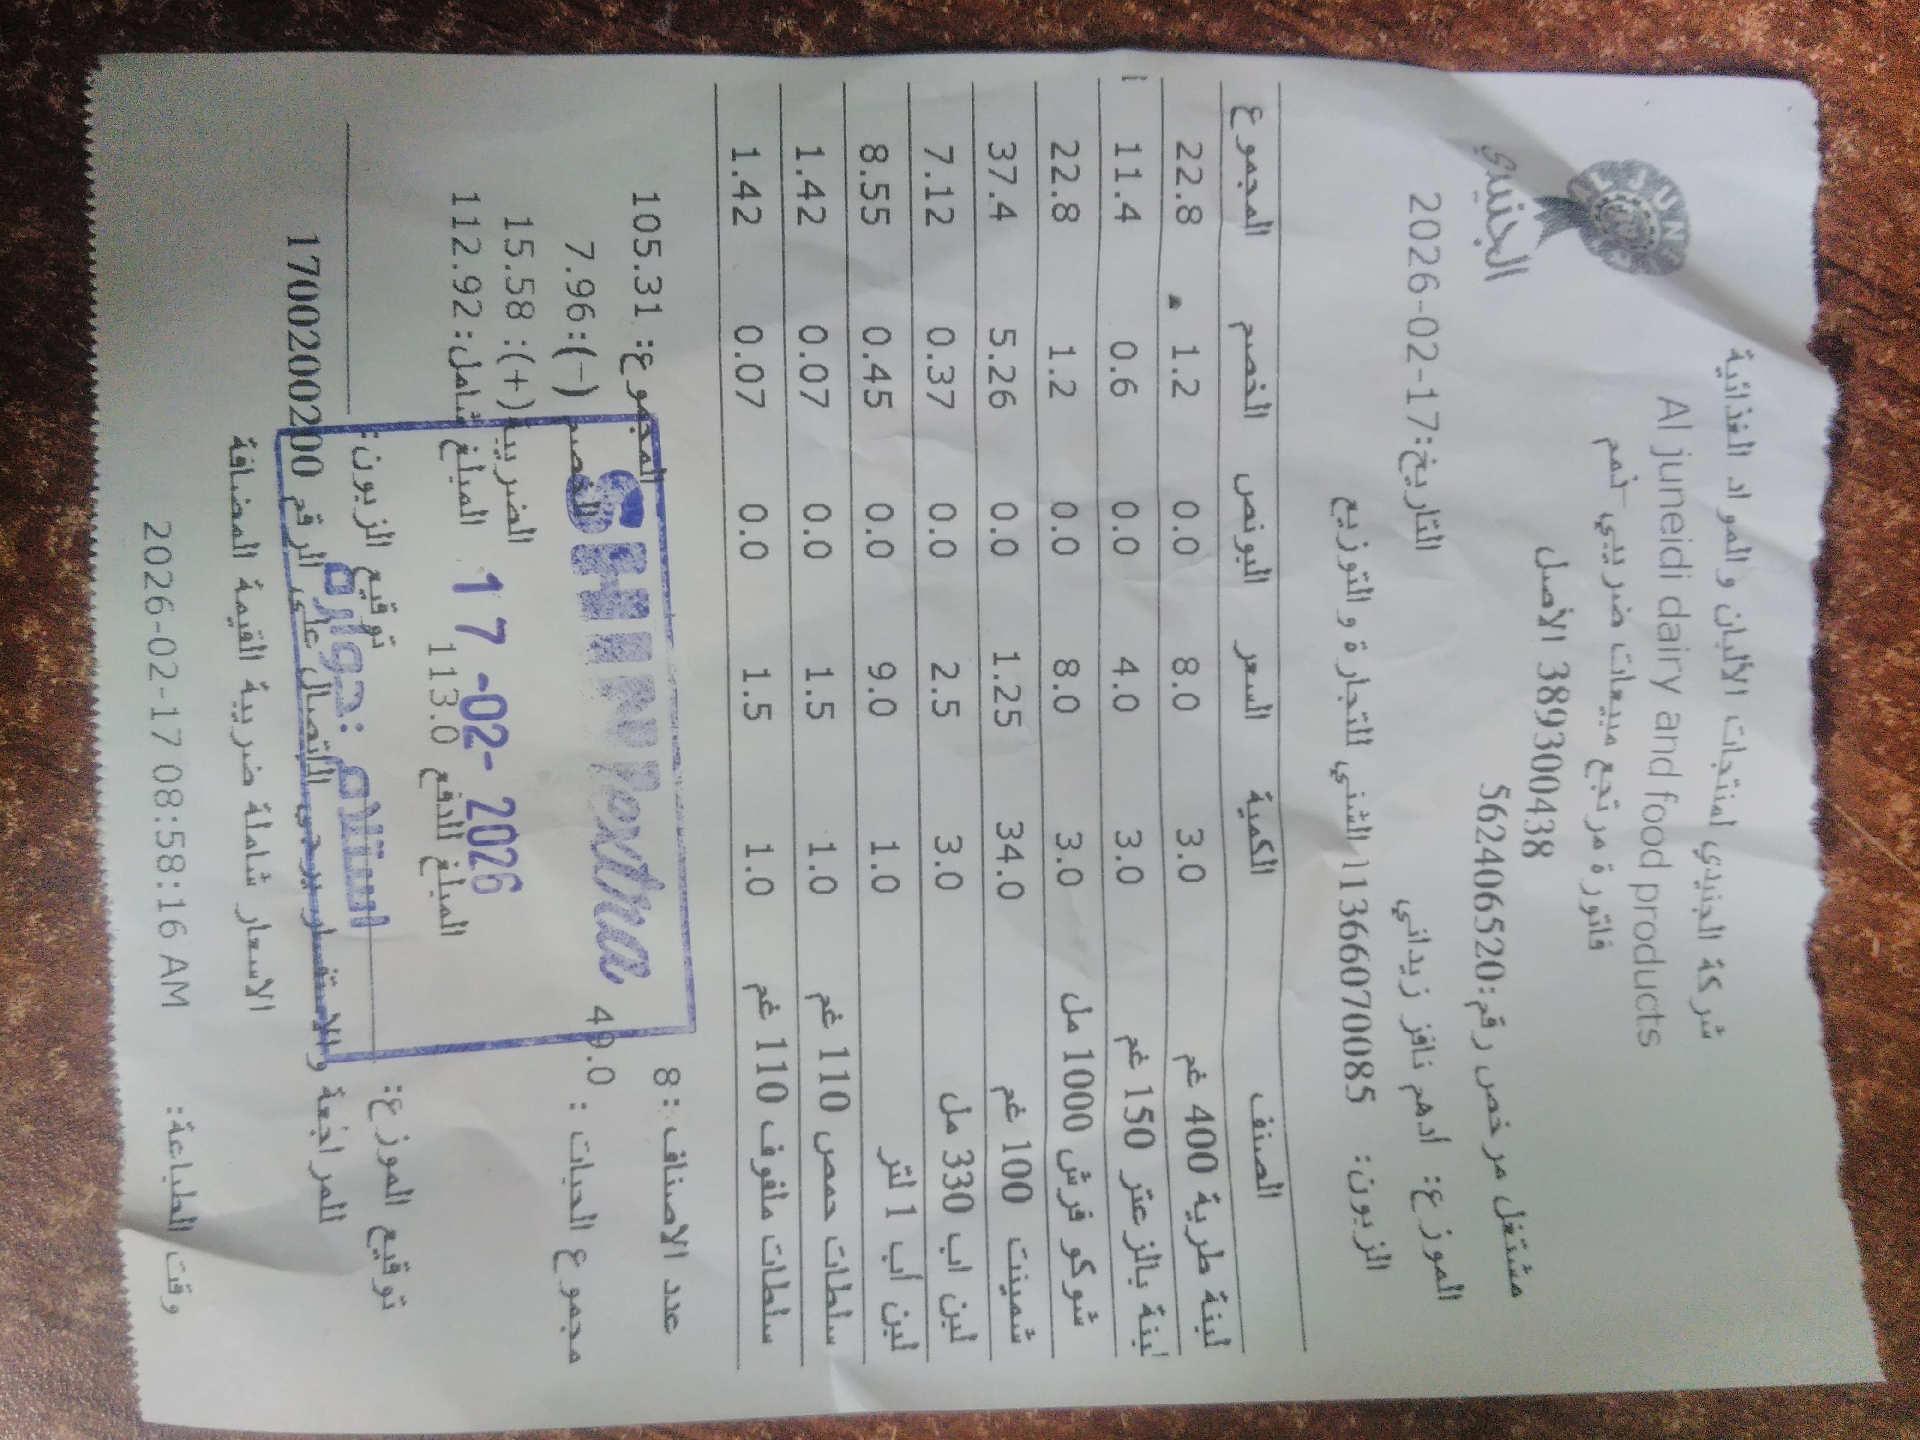 شركة الجنيدي لمنتجات الألبان والمواد الغذائية
Al juneidi dairy and food products
فاتورة مرتجع مبيعات ضريبي-نمم
389300438 الأصل
الجنيدي
مشتغل مرخص رقم:562406520
التاريخ:2026-02-17
الموزع: أدهم نافز زيداني
الزبون: 11366070085 الشني للتجارة والتوزيع
الصنف الكمية السعر البونص الخصم المجموع
لبنة طرية 400 غم 3.0 8.0 0.0 1.2 22.8
لبنة بالزعتر 150 غم 3.0 4.0 0.0 0.6 11.4
شوكو فرش 1000 مل 3.0 8.0 0.0 1.2 22.8
شمينت 100 غم 34.0 1.25 0.0 5.26 37.4
لبن اب 330 مل 3.0 2.5 0.0 0.37 7.12
لبن أب 1 لتر 1.0 9.0 0.0 0.45 8.55
سلطات حمص 110 غم 1.0 1.5 0.0 0.07 1.42
سلطات ملفوف 110 غم 1.0 1.5 0.0 0.07 1.42
عدد الاصناف: 8 المجموع: 105.31
مجموع الحبات: 49.0 الخصم (-): 7.96
الضريبة (+): 15.58
المبلغ شامل: 112.92
المبلغ للدفع 113.0
SHINI extra
17-02-2026
استلام: حوارة
توقيع الموزع: توقيع الزبون:
للمراجعة والاستفسار يرجى الاتصال على الرقم 1700200200
الاسعار شاملة ضريبة القيمة المضافة
وقت الطباعة: 2026-02-17 08:58:16 AM